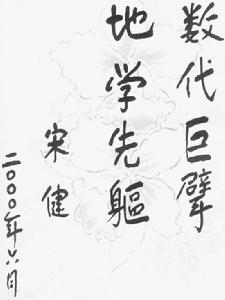 数代巨擘
地学先驱
宋健
二〇〇〇年六月